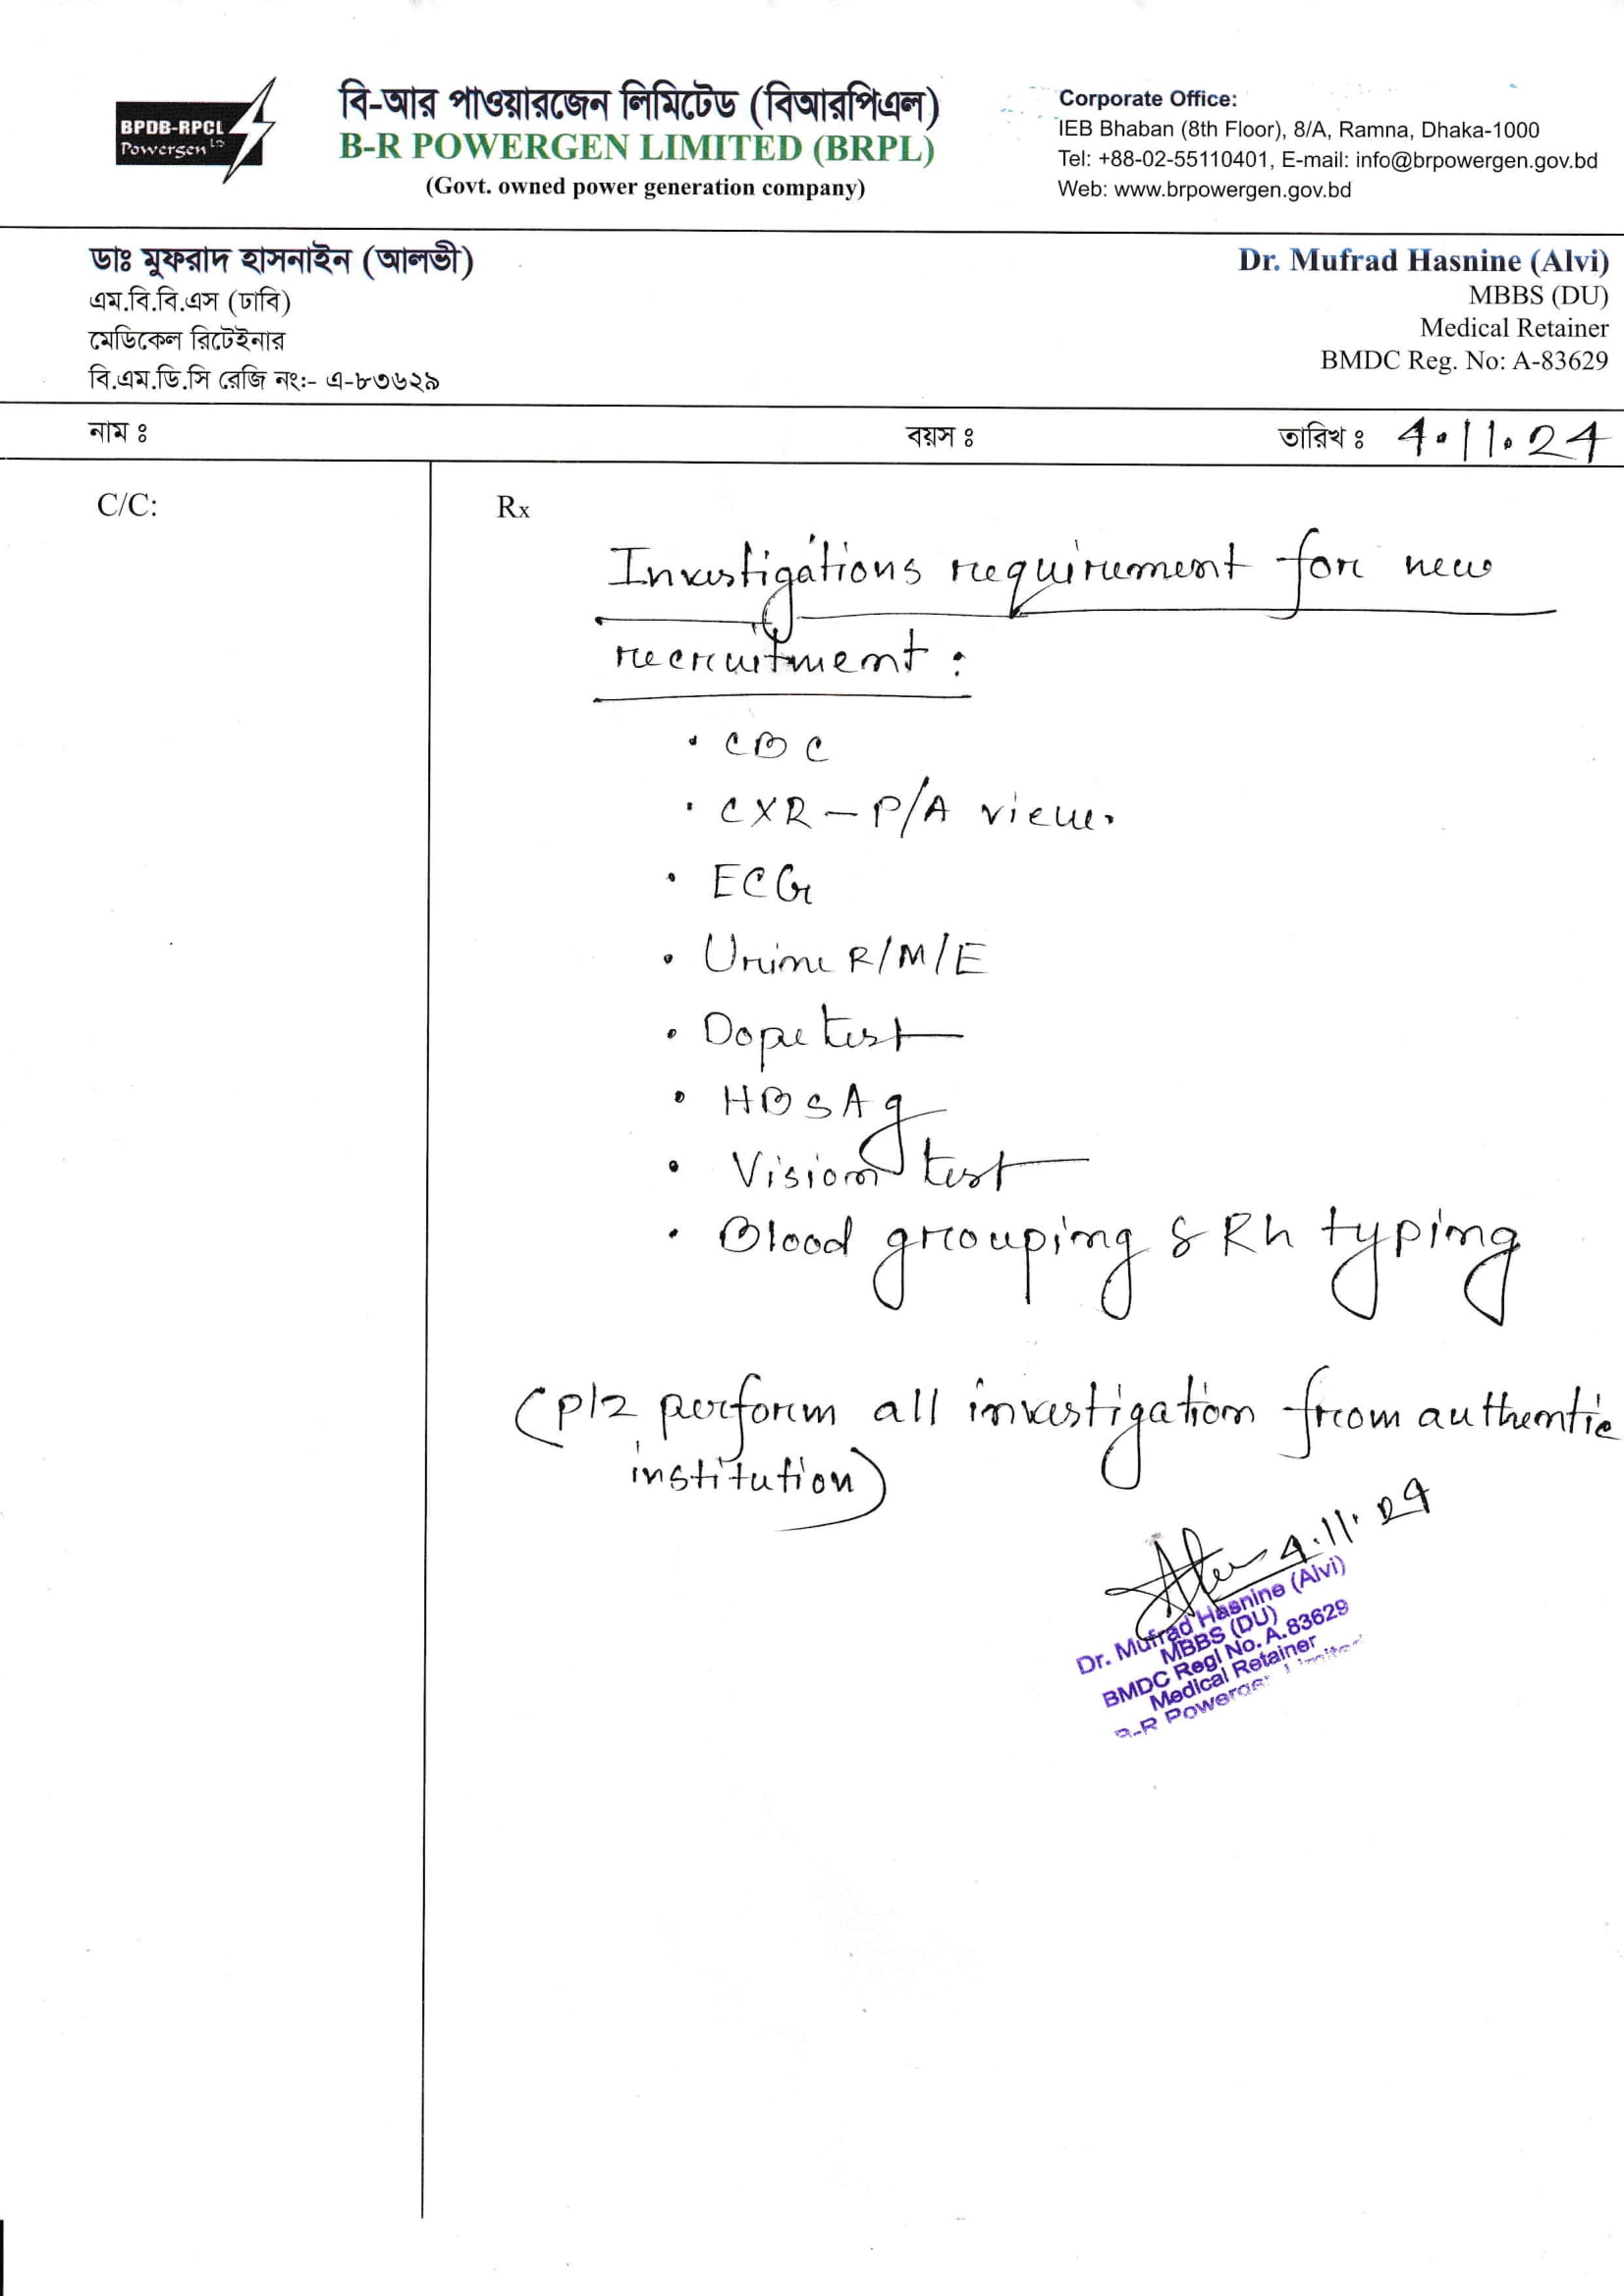 BPDB-RPCL
Powergen LTD
বি-আর পাওয়ারজেন লিমিটেড (বিআরপিএল)
B-R POWERGEN LIMITED (BRPL)
(Govt. owned power generation company)
Corporate Office:
IEB Bhaban (8th Floor), 8/A, Ramna, Dhaka-1000
Tel: +88-02-55110401, E-mail: info@brpowergen.gov.bd
Web: www.brpowergen.gov.bd
ডাঃ মুফরাদ হাসনাইন (আলভী)
এম.বি.বি.এস (ঢাবি)
মেডিকেল রিটেইনার
বি.এম.ডি.সি রেজি নং:- এ-৮৩৬২৯
Dr. Mufrad Hasnine (Alvi)
MBBS (DU)
Medical Retainer
BMDC Reg. No: A-83629
নাম ঃ বয়স ঃ তারিখ ঃ 4.11.24
C/C:
Rx
Investigations requirement for new
recruitment :
• CBC
• CXR - P/A view.
• ECG
• Urine R/M/E
• Dope test
• HBSAg
• Vision test
• Blood grouping & Rh typing
(plz perform all investigation from authentic
institution)
4.11.24
Dr. Mufrad Hasnine (Alvi)
MBBS (DU)
BMDC Regl No. A.83629
Medical Retainer
B-R Powergen Limited